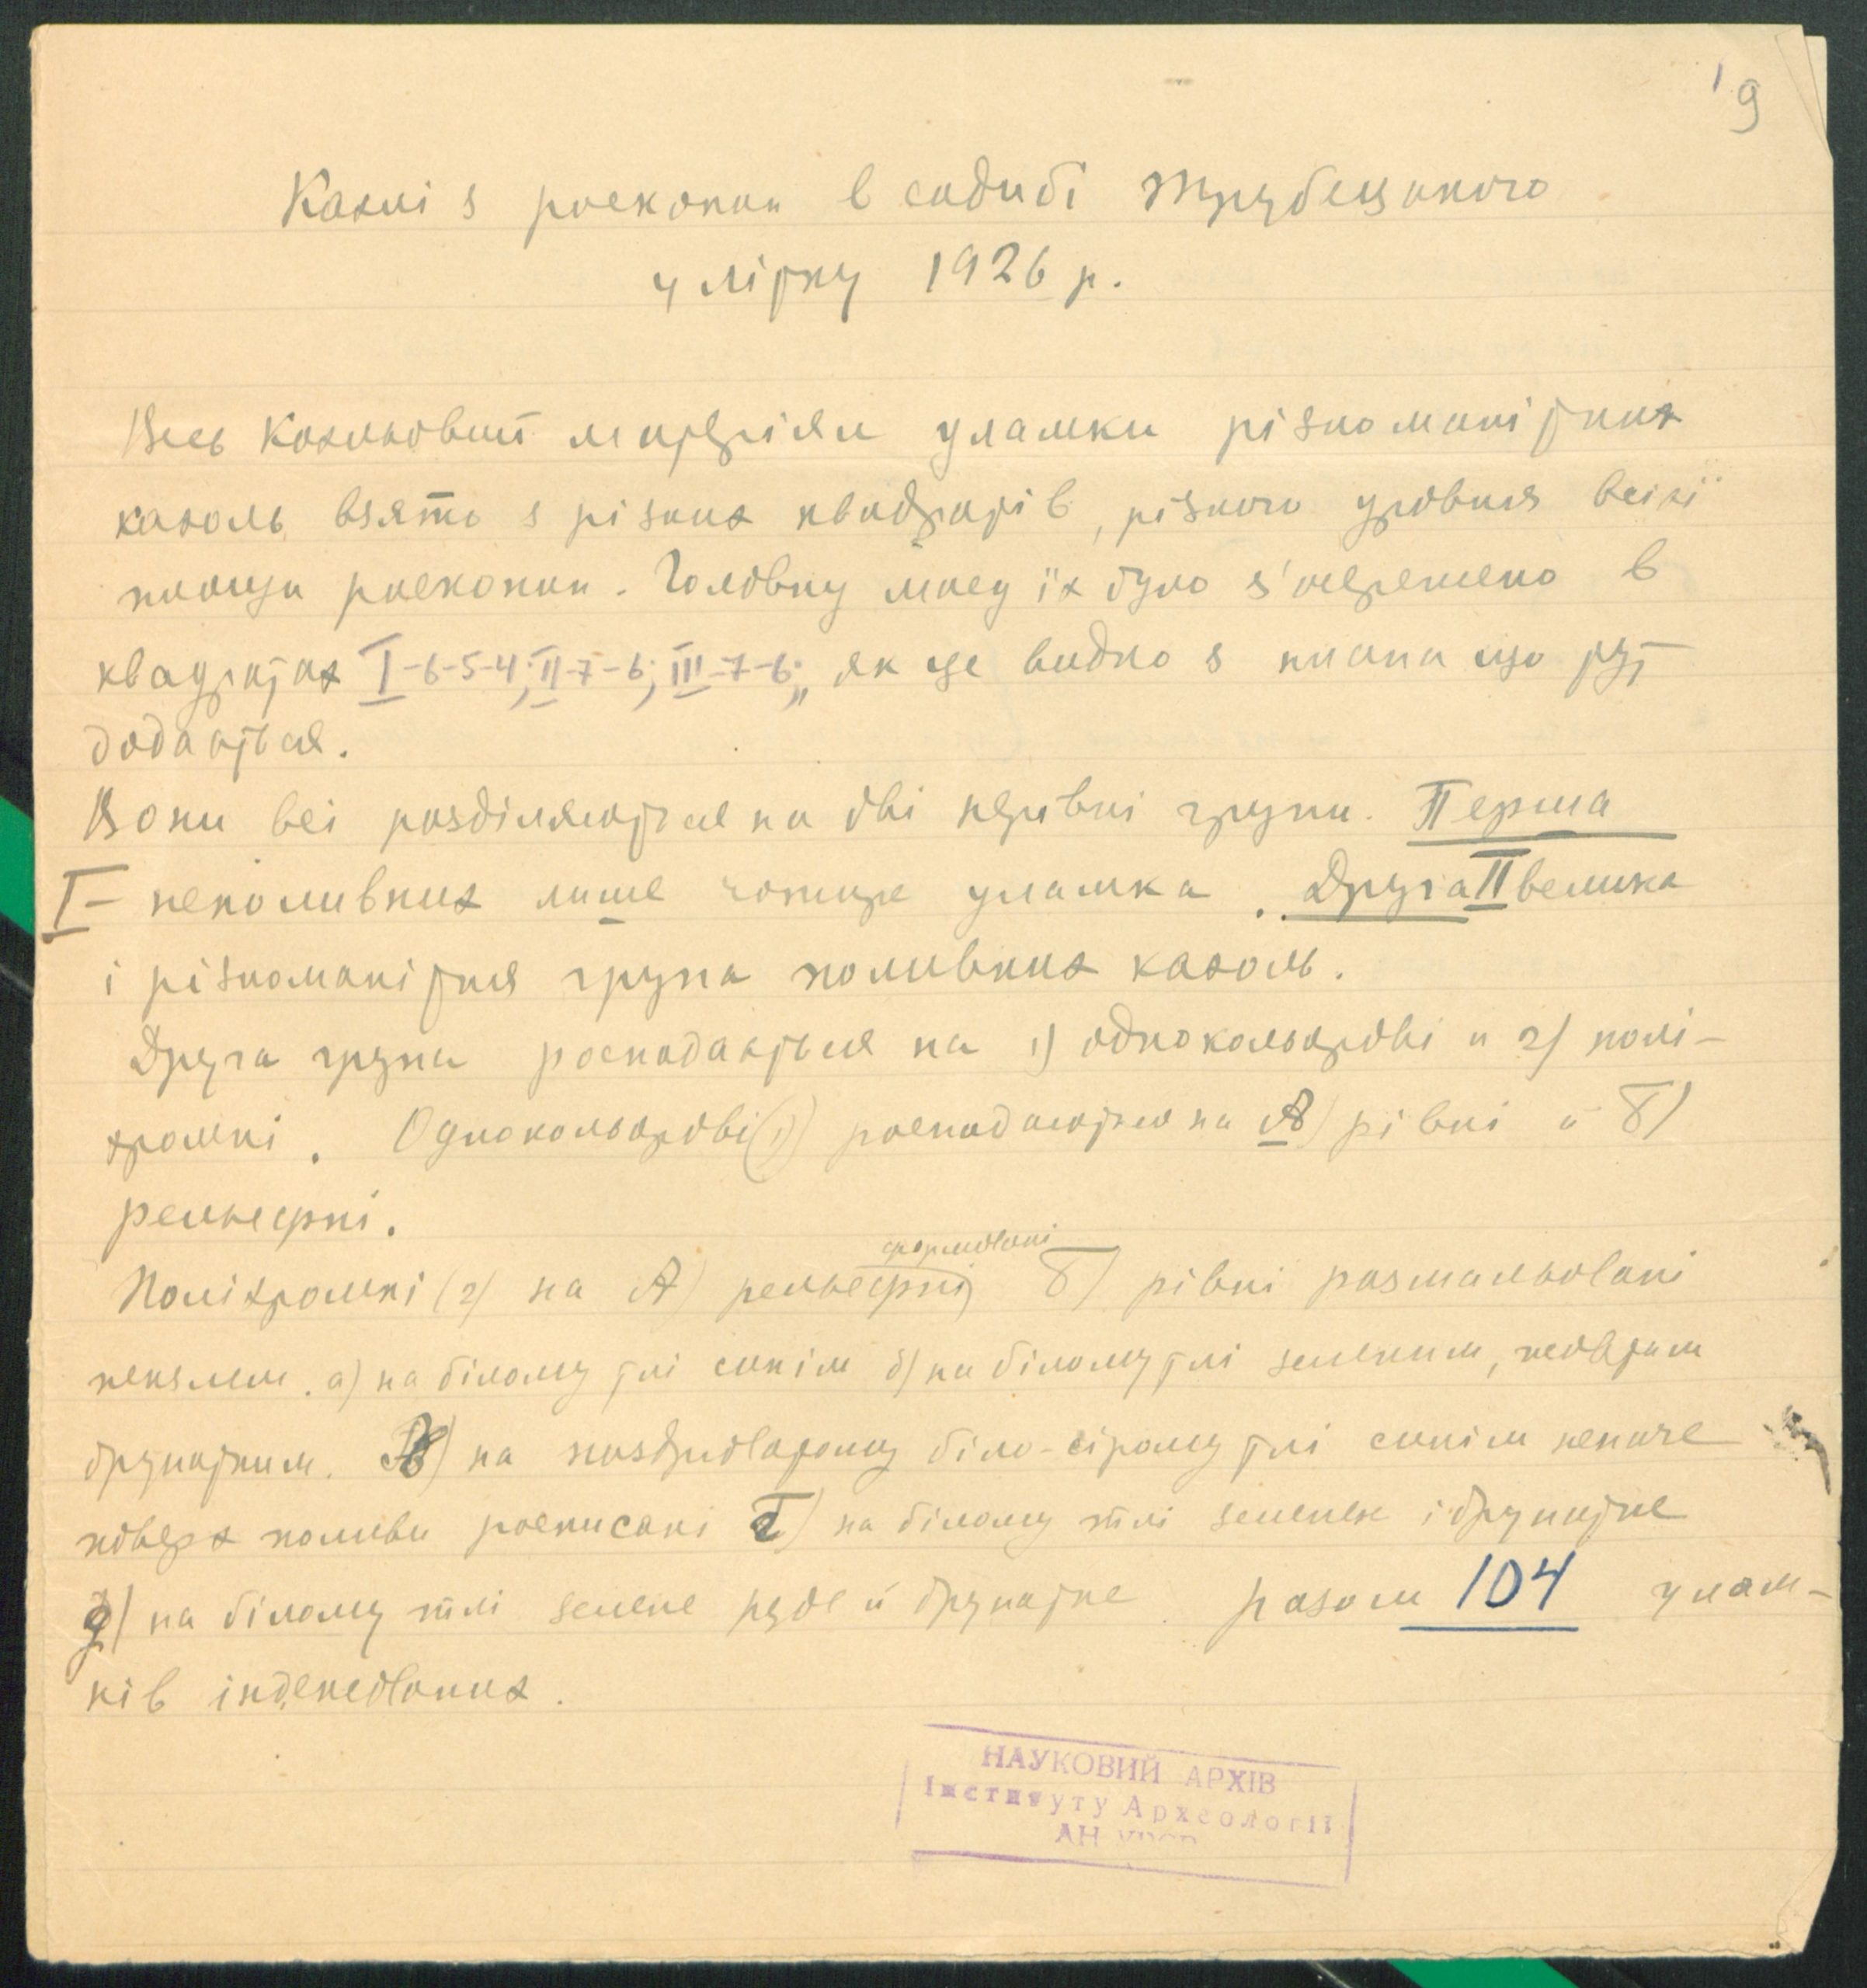 9
Кахлі з росккопки в садибі Трубецького
у літку 1926 р.
Весь Кахльовий матеріял уламки різноманітних
кахоль взято з різних квадратів, різного уровня всієї
площи розкопки. Головну масу їх було з'осережено в
квадратах I-6-5-4; II-7-6; III-7-6;, як це видно з плана що тут
додається.
Вони всі розділяються на дві нерівні групи. Перша
I – неполивних лише чотире уламка. Друга II велика
і різноманітня група поливних кахоль.
Друга група роспадається на 1) однокольорові и 2) полі-
хромні. Однокольорові (1) роспадаються на А) рівні й Б)
рельефні.
формовані
Поліхромні (2) на А) рельефні, Б) рівні размальовані
пензлем. а) на білому тлі синім б) на білому тлі зеленим,
брунатним. В) на білo-сірому тлі синім неначе
поверх поливи росписані Г) на білому тлі зелене і брунатне
д) на білому тлі зелене руде й брунатне разом 104 улам-
ків
НАУКОВИЙ АРХІВ
Інституту Археології
АН УРСР